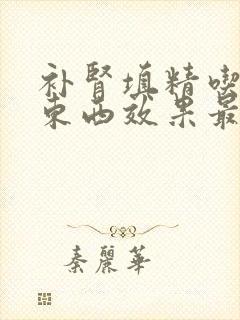 补肾填精喫
东西效果最
秦麗華